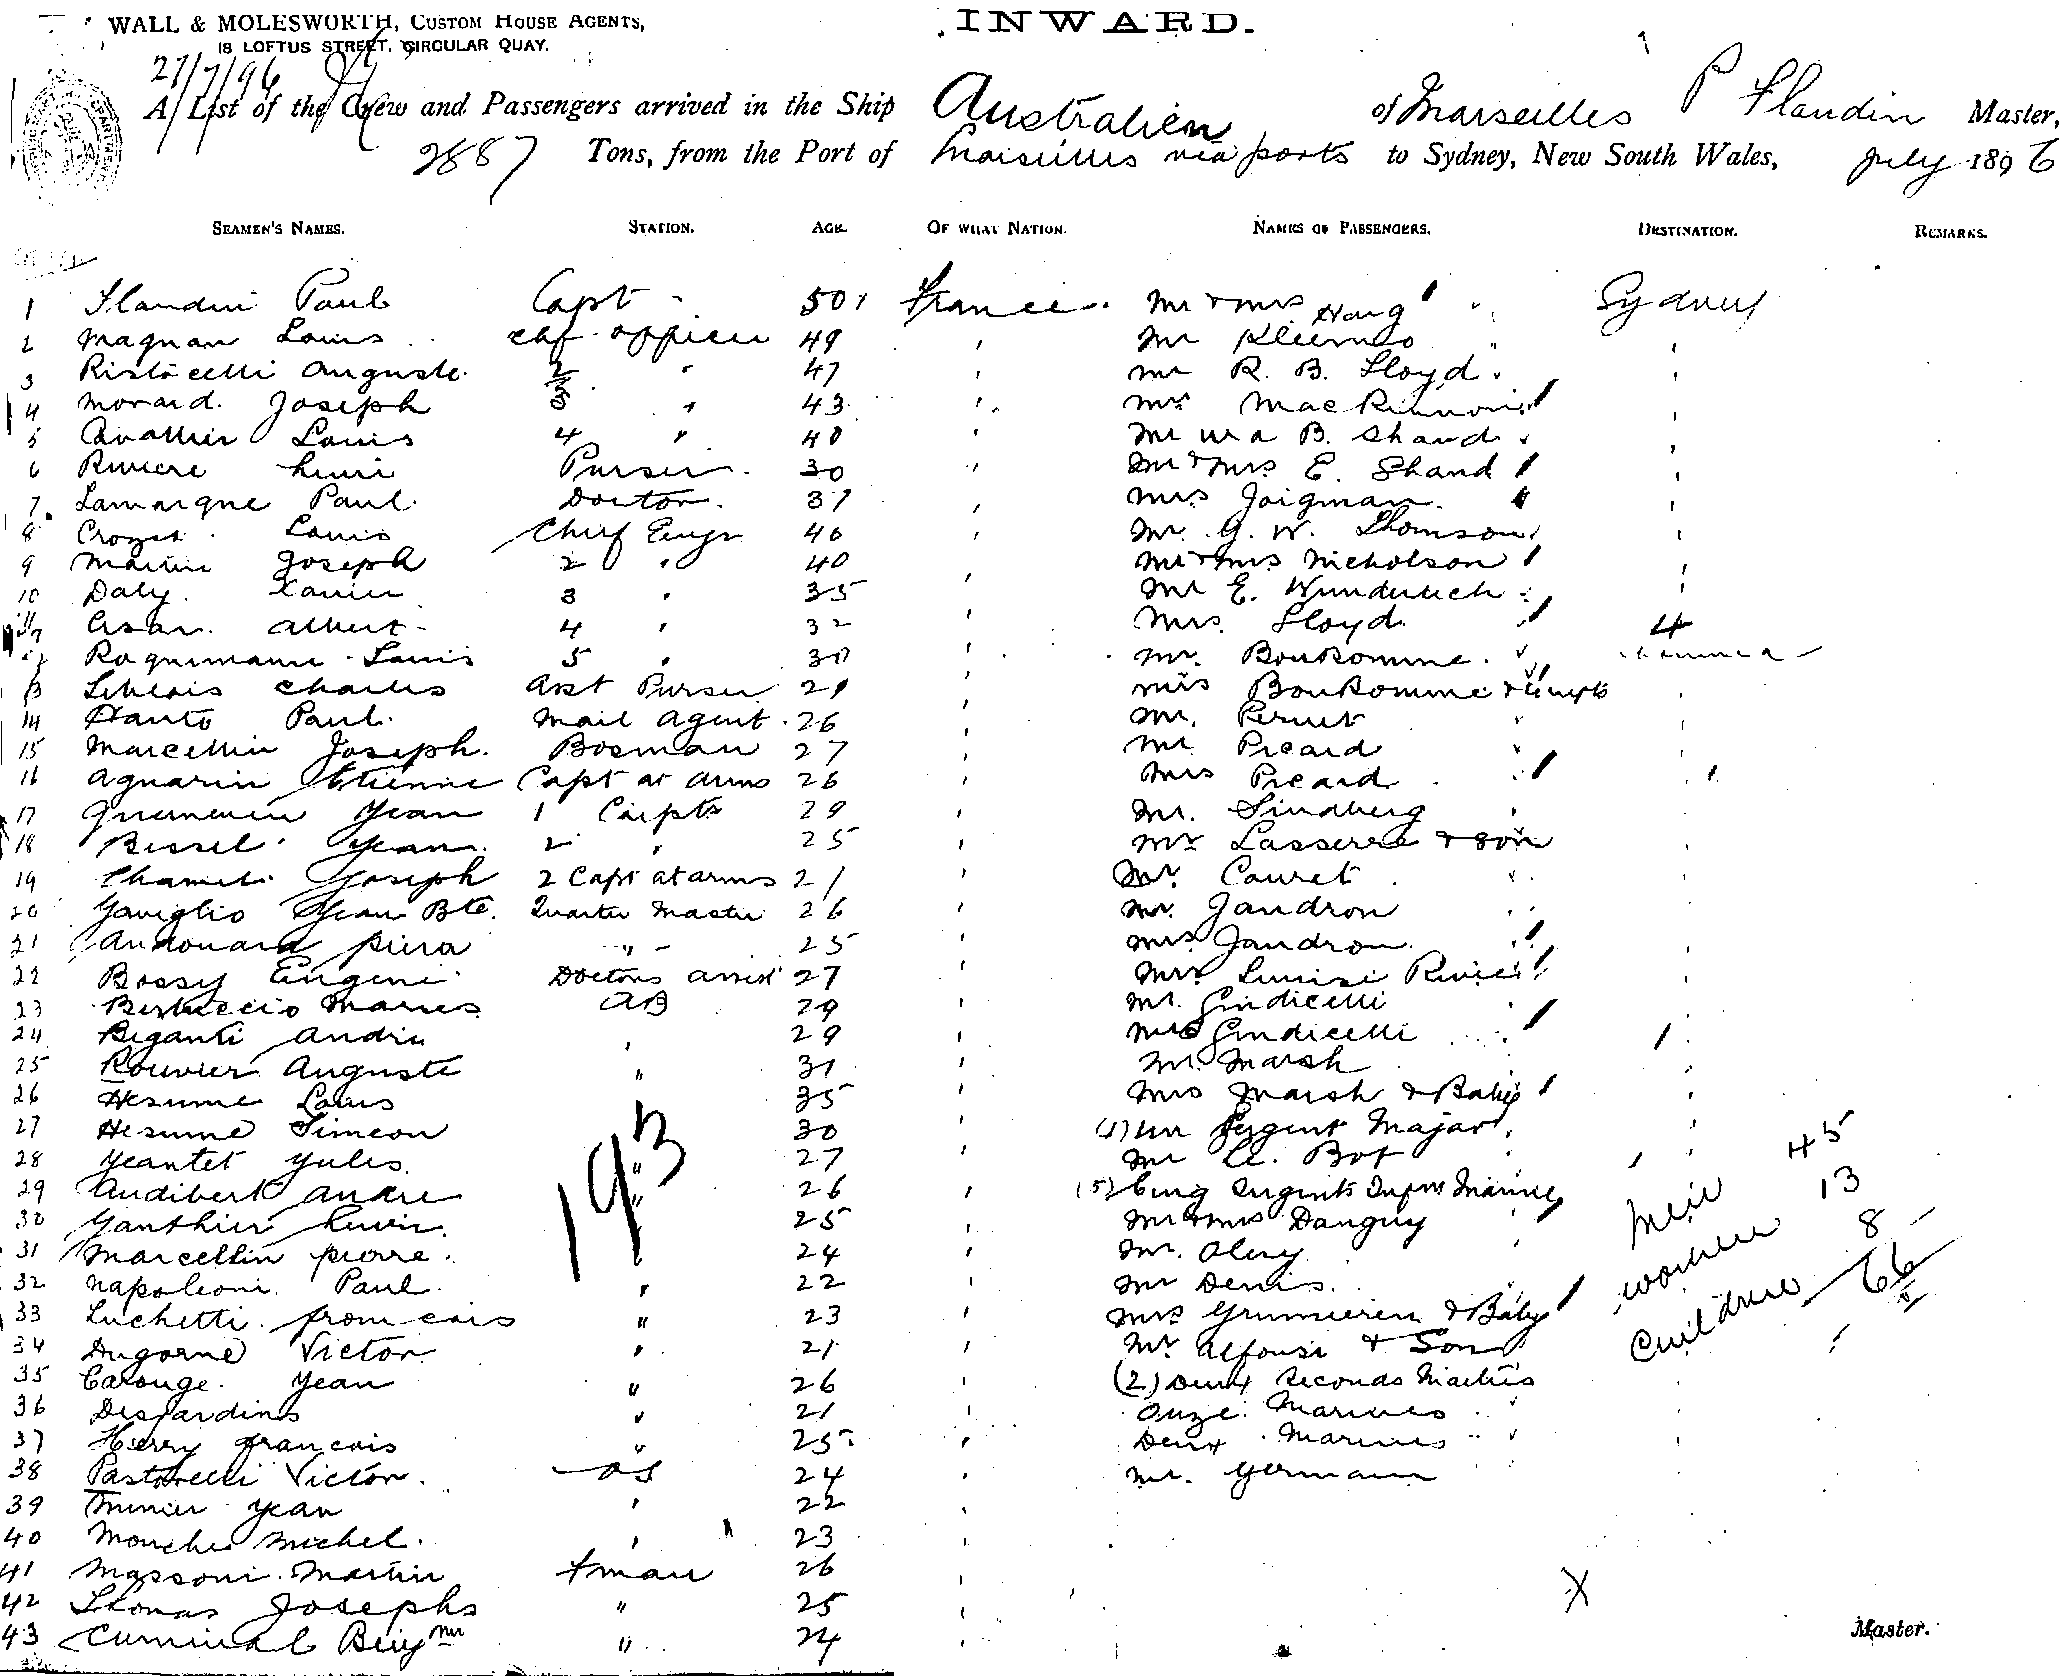 WALL & MOLESWORTH, CUSTOM HOUSE AGENTS,
18 LOFTUS STREET, CIRCULAR QUAY.
INWARD.
27/7/96
A List of the Crew and Passengers arrived in the Ship Australien of Marseilles P Flandin Master,
2887 Tons, from the Port of Marseilles via ports to Sydney, New South Wales, July 1896
SEAMEN'S NAMES. STATION. AGE. OF WHAT NATION. NAMES OF PASSENGERS. DESTINATION. REMARKS.
1 Flandin Paul Capt 50 France Mr & Mrs Haig Sydney
2 Magnan Louis chf officer 49 Mr
3 Ristocelli Auguste 2 " 47 Mr R. B. Lloyd
4 Morard Joseph 3 " 43 Mrs MacKinnon
5 Louis 4 " 40 Mr B. Shand
6 Riviere henri Purser 30 Mr & Mrs E. Shand
7 Lamargue Paul Doctor 37 Mrs Joigman
8 Louis Chief Engr 46 Mr. G. W. Thomson
9 Martin Joseph 2 " 40 Mr & Mrs Nicholson
10 Daly Xavier 3 " 35 Mr E. Wunderlich
11 Albert 4 " 32 Mrs. Lloyd 4
12 Louis 5 " 30 Mr. Boukomme Noumea
13 Leblois Charles Asst Purser 29 Mrs Boukomme &
14 Hanto Paul Mail Agent 26 Mr. Pernet
15 Marcellin Joseph Bosman 27 Mr Picard
16 Aquarin Etienne Capt at arms 26 Mrs Picard
17 Jean 1 Carptr 29 Mr. Lindberg
18 Bissel Jean 2 " 25 Mr Lasserre & son
19 Joseph 2 Capt at arms 21 Mr. Couret
20 Gaviglio Jean Bte. Quarter Master 26 Mr. Jandron
21 Andouard piera " 25 Mrs Jandron
22 Bossy Eugene Doctors assist 27 Mrs Louise Rivier
23 Bertuccio Marius AB 29 Mr. Giudicelli
24 Biganti Andre " 29 Mrs Giudicelli
25 Rouvier Auguste " 31 Mr. Marsh
26 Hesume Louis " 35 Mrs Marsh & Baby
27 Hesume Simeon " 30 (1) un Sergent Major
28 Yeantet Yules " 27 Mr A. Bot
29 Audibert Andre " 26 (5) Cinq Sergents
30 Ganthier " 25 Mr & Mrs Danguy
31 Marcellin pierre " 24 Mr. Olery
32 Napoleoni Paul " 22 Mr Denis
33 Luchetti francois " 23 Mrs Grumieren & Baby
34 Dugorne Victor " 21 Mr Alfonsi & Son
35 Carouge Yean " 26 (2) Deux Seconds Maitres
36 Desjardins " 21 Onze Marines
37 Herry francois " 25 Deux Marines
38 Pastorelli Victor OS 24 Mr. Germain
39 Minier Yean " 22
40 Mouche Michel " 23
41 Massoni Martin Fman 26
42 Thomas Josephs " 25
43 Cuminal " 24
193
Men 45
women 13
Children 8
66
X
Master.